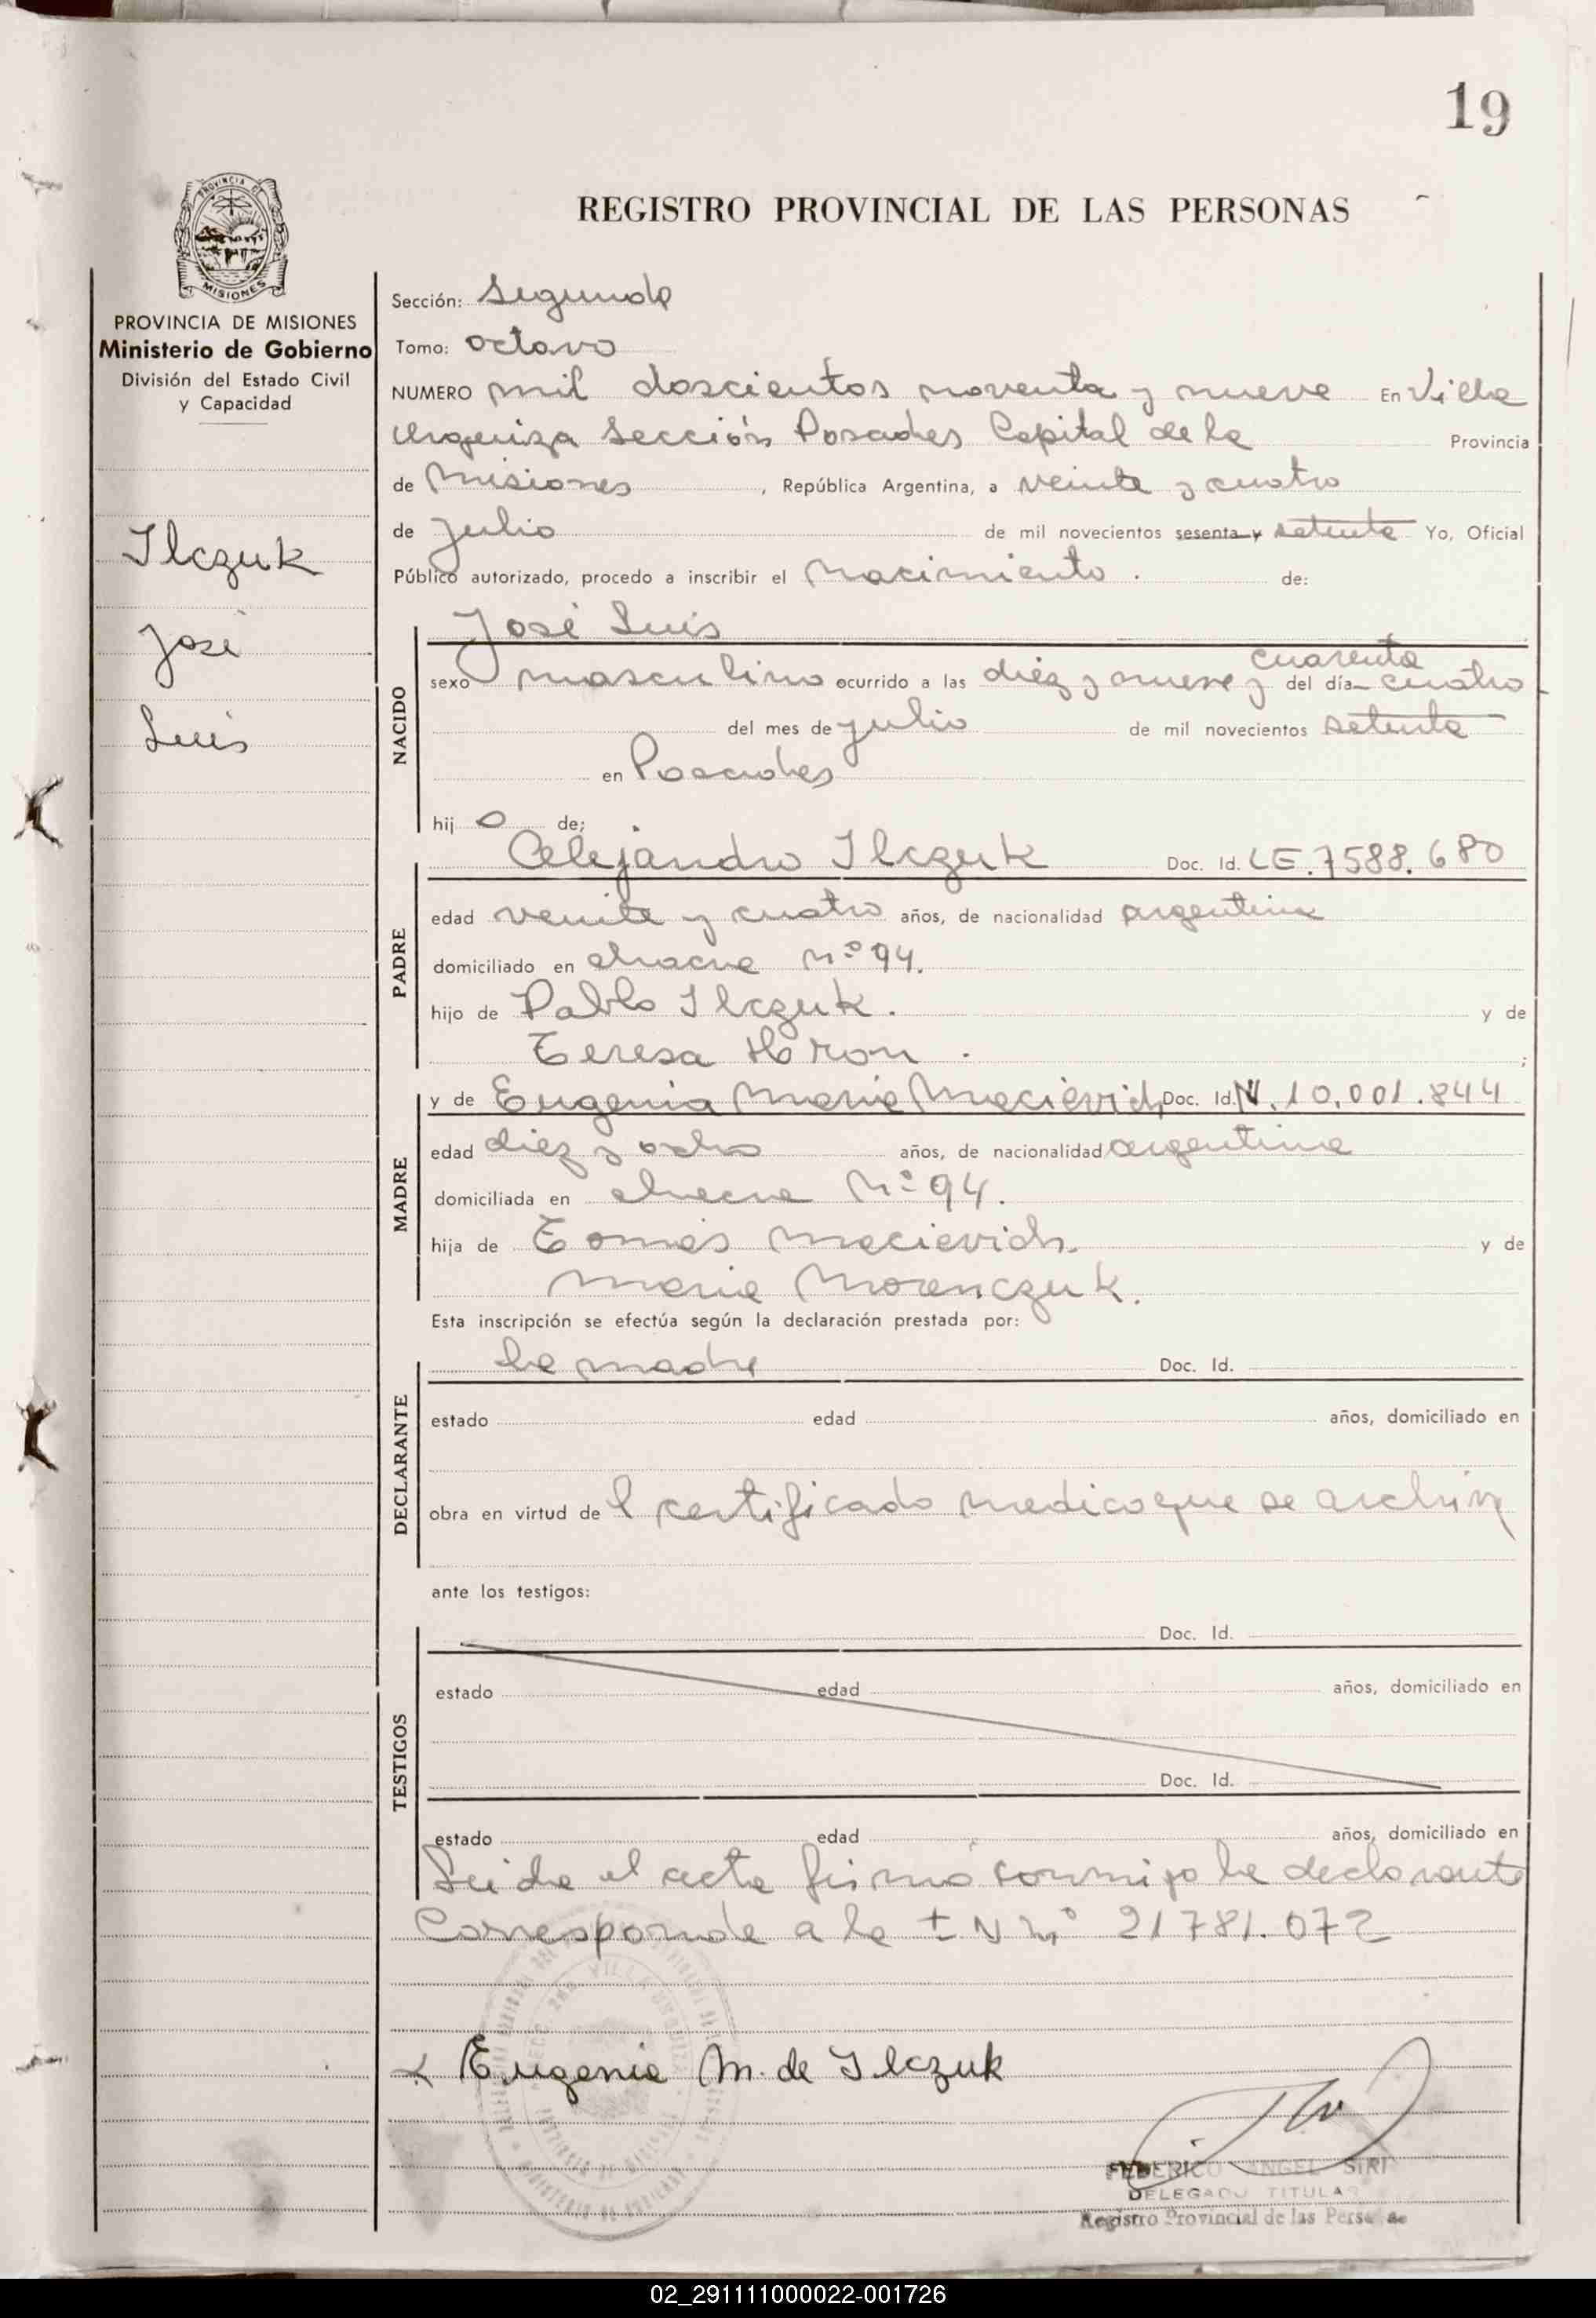 19
REGISTRO PROVINCIAL DE LAS PERSONAS
PROVINCIA DE MISIONES
PROVINCIA DE MISIONES
Ministerio de Gobierno
División del Estado Civil
y Capacidad
Ilczuk
José
Luis
Sección: Segunda
Tomo: octavo
NUMERO mil doscientos noventa y nueve En Villa
Urquiza Sección Posadas Capital de la Provincia
de Misiones, República Argentina, a veinte y cuatro
de julio de mil novecientos sesenta y setenta Yo, Oficial
Público autorizado, procedo a inscribir el nacimiento. de:
NACIDO
José Luis
cuarenta
sexo masculino ocurrido a las diez y nueve y del día cuatro
del mes de julio de mil novecientos setenta
en Posadas
hijo de;
PADRE
Alejandro Ilczuk Doc. Id. LE.7588.680
edad veinte y cuatro años, de nacionalidad argentina
domiciliado en chacra nº 94.
hijo de Pablo Ilczuk. y de
Teresa Horon.
MADRE
y de Eugenia Maria Macievich Doc. Id. N. 10.001.844
edad diez y ocho años, de nacionalidad argentina
domiciliada en chacra nº 94.
hija de Tomás Macievich. y de
Maria Morenczuk.
Esta inscripción se efectúa según la declaración prestada por:
DECLARANTE
la madre Doc. Id.
estado edad años, domiciliado en
obra en virtud del certificado medico que se archiva
ante los testigos:
TESTIGOS
Doc. Id.
estado edad años, domiciliado en
Doc. Id.
estado edad años, domiciliado en
Leida el acta firmó conmigo la declarante
Corresponde a la nº 21781.072
Eugenia M. de Ilczuk
FEDERICO ANGEL SIRI
DELEGADO TITULAR
Registro Provincial de las Personas
02_291111000022-001726